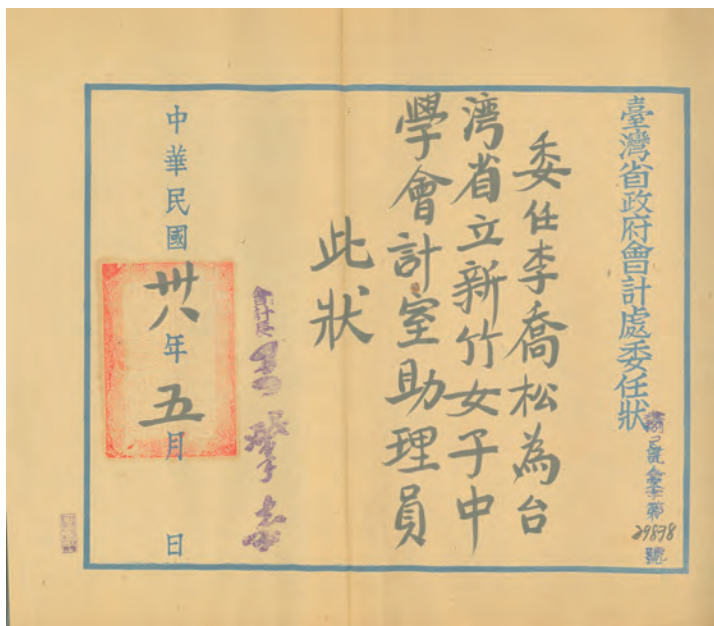 臺灣省政府會計處委任狀
第29898號
委任李喬松為台
湾省立新竹女子中
學會計室助理員
此狀
會計長
中華民國卅八年五月 日